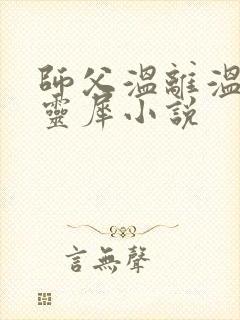 師父溫離溫
靈犀小説
言無聲